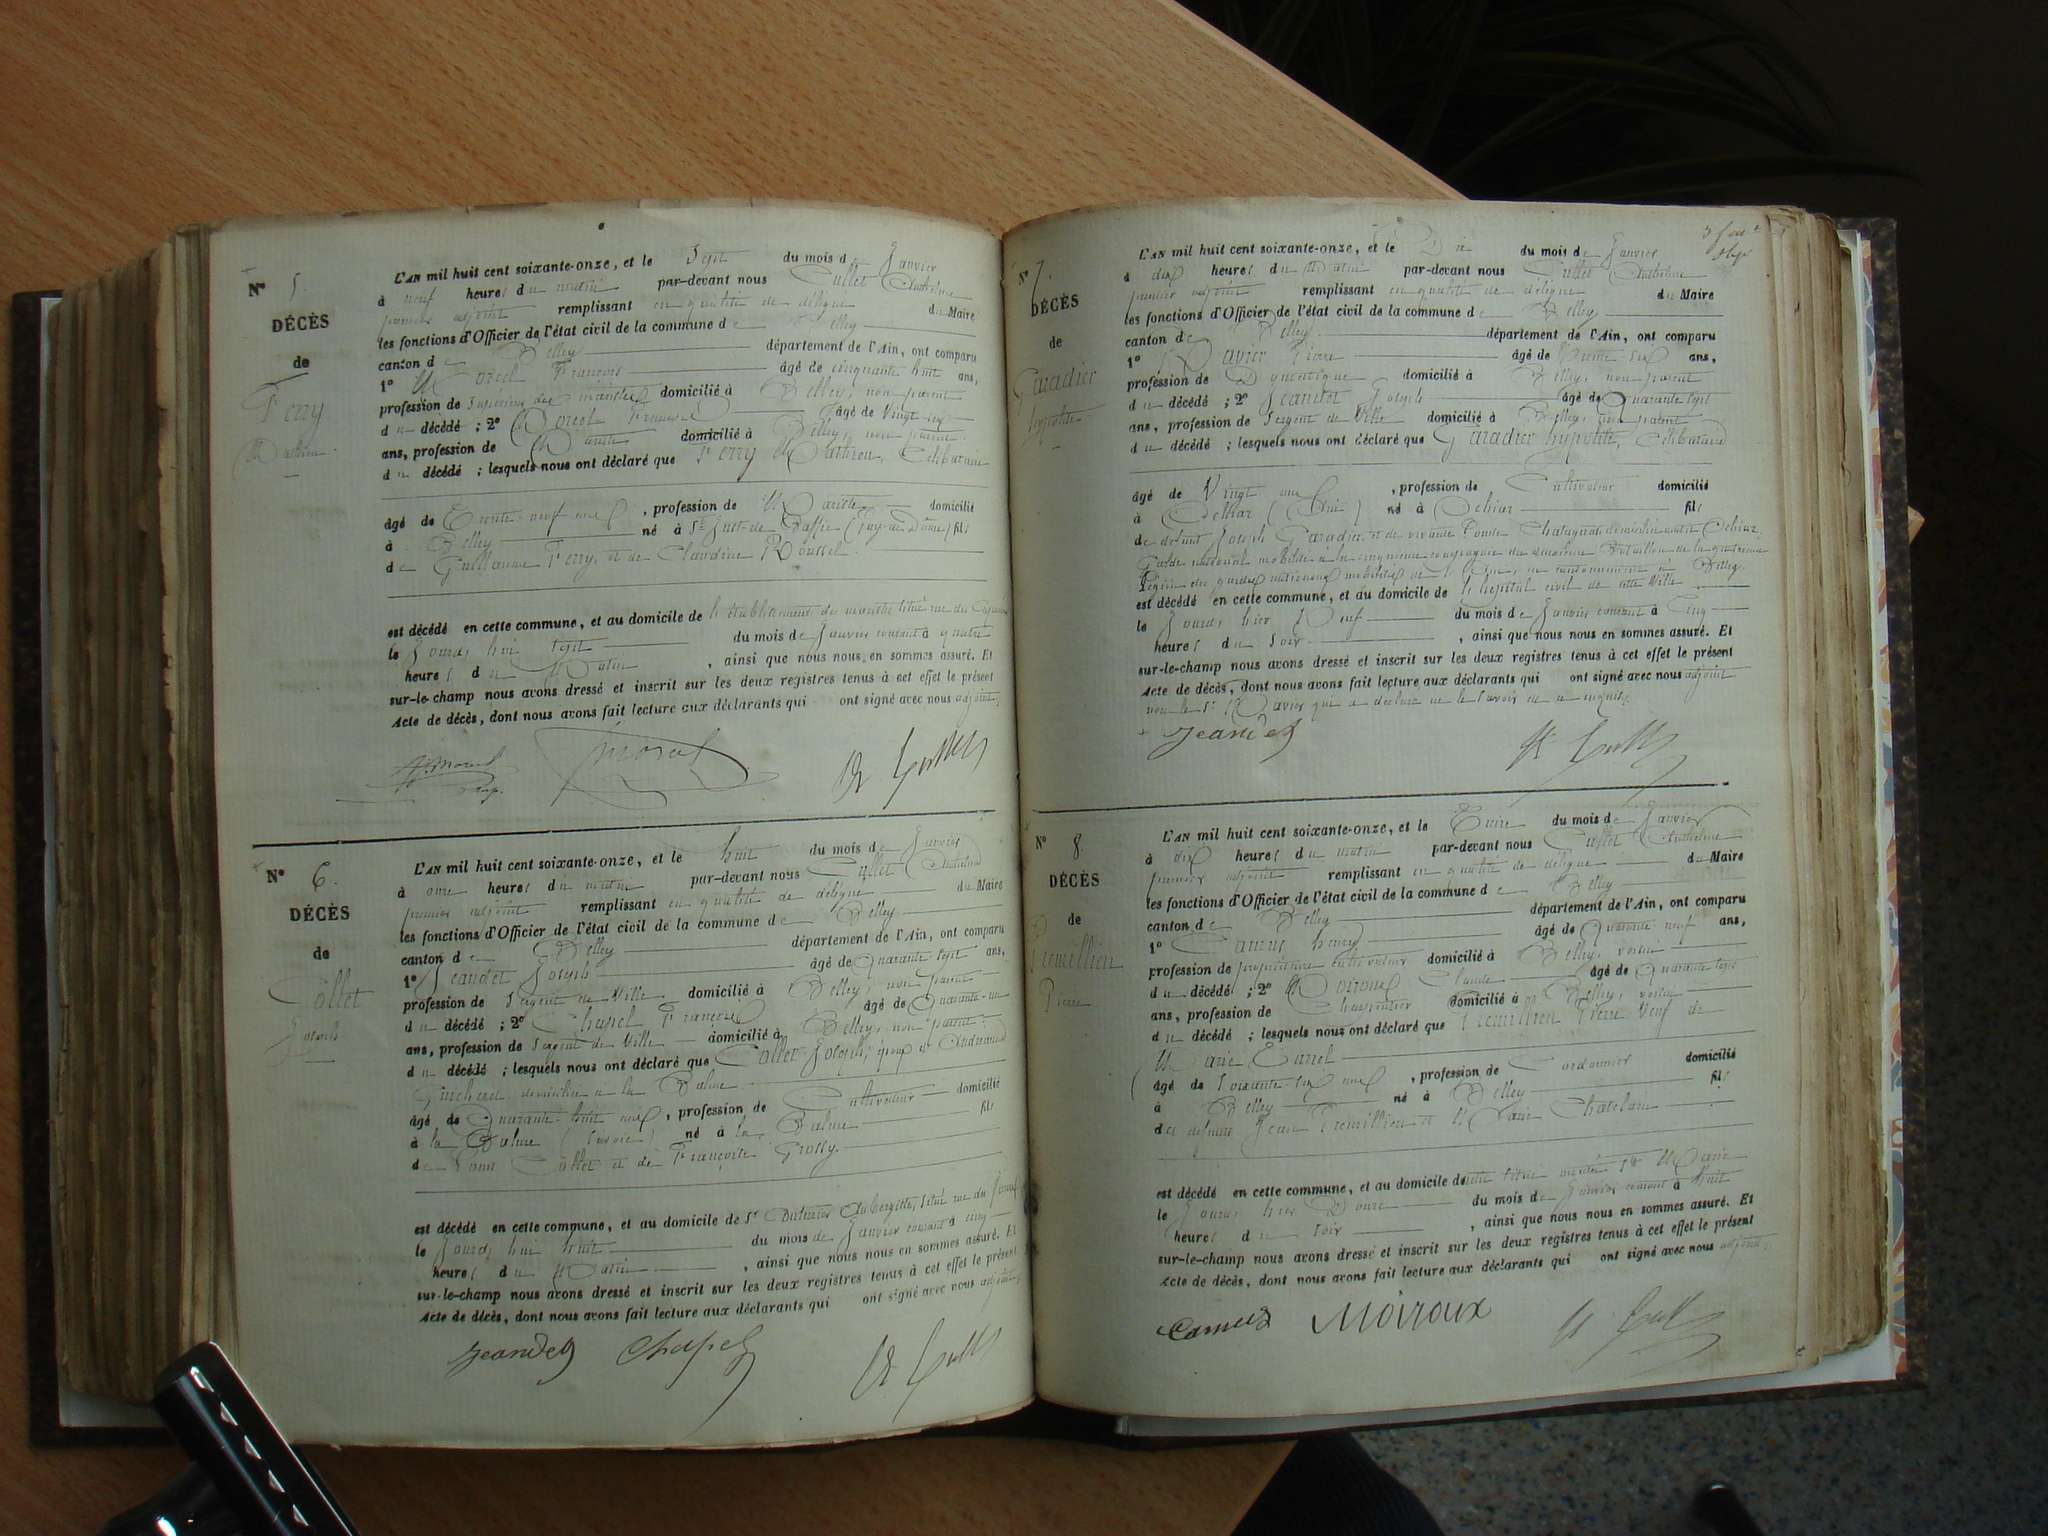 Nº 5.
DÉCÈS
de
Ferry
Mathieu
L'AN mil huit cent soixante-onze, et le Sept du mois de Janvier
à neuf heures du matin par-devant nous Cullet Anthelme
premier adjoint remplissant en qualité de délégué du Maire
les fonctions d'Officier de l'état civil de la commune de Belley
canton de Belley département de l'Ain, ont comparu
1º Morel François âgé de cinquante huit ans,
profession de domicilié à Belley, non parent
du décédé ; 2º Morel âgé de Vingt six
ans, profession de Mariste domicilié à Belley, non parent
du décédé ; lesquels nous ont déclaré que Ferry Mathieu, Célibataire
âgé de Trente-neuf ans, profession de Mariste domicilié
à Belley né à St Just-de-Baffie (Puy-de-Dôme) fils
de Guillaume Ferry, et de Claudine Roussel
est décédé en cette commune, et au domicile de l'établissement des maristes situé rue des
le Jourd'hui sept du mois de Janvier courant à quatre
heures du Matin, ainsi que nous nous en sommes assuré. Et
sur-le-champ nous avons dressé et inscrit sur les deux registres tenus à cet effet le présent
Acte de décès, dont nous avons fait lecture aux déclarants qui ont signé avec nous adjoint
Morel
Nº 6.
DÉCÈS
de
Collet
Joseph
L'AN mil huit cent soixante-onze, et le huit du mois de Janvier
à onze heures du matin par-devant nous Cullet Anthelme
premier adjoint remplissant en qualité de délégué du Maire
les fonctions d'Officier de l'état civil de la commune de Belley
canton de Belley département de l'Ain, ont comparu
1º Jeandet Joseph âgé de Quarante sept ans,
profession de Sergent de Ville domicilié à Belley, non parent
du décédé ; 2º Chapel François âgé de Quarante-un
ans, profession de Sergent de Ville domicilié à Belley, non parent
du décédé ; lesquels nous ont déclaré que Collet Joseph, époux d'
domiciliée à la Balme
âgé de Quarante huit ans, profession de Cultivateur domicilié
à la Balme (Savoie) né à la Balme fils
de Collet et de Françoise
est décédé en cette commune, et au domicile de Sr Aubergiste, situé rue du
le Jourd'hui huit du mois de Janvier courant à cinq
heures du Matin, ainsi que nous nous en sommes assuré. Et
sur-le-champ nous avons dressé et inscrit sur les deux registres tenus à cet effet le présent
Acte de décès, dont nous avons fait lecture aux déclarants qui ont signé avec nous adjoint
Jeandet Chapel
Nº 7.
DÉCÈS
de
Garadier
hypolite
L'AN mil huit cent soixante-onze, et le Dix du mois de Janvier
à dix heures du Matin par-devant nous Cullet Anthelme
premier adjoint remplissant en qualité de délégué du Maire
les fonctions d'Officier de l'état civil de la commune de Belley
canton de Belley département de l'Ain, ont comparu
1º Pierre âgé de Trente-six ans,
profession de Domestique domicilié à Belley, non parent
du décédé ; 2º Jeandet Joseph âgé de Quarante sept
ans, profession de Sergent de Ville domicilié à Belley, non parent
du décédé ; lesquels nous ont déclaré que Garadier hypolite, Célibataire
âgé de Vingt ans, profession de Cultivateur domicilié
à (Ain) né à fils
de défunt Joseph Garadier et de vivante domiciliée
Garde national mobilisé à la cinquième compagnie du Bataillon de la quatrième
Légion des gardes nationaux mobilisés de l'Ain, en cantonnement à Belley
est décédé en cette commune, et au domicile de l'hôpital civil de cette Ville
le Jourd'hier Neuf du mois de Janvier courant à Cinq
heures du Soir, ainsi que nous nous en sommes assuré. Et
sur-le-champ nous avons dressé et inscrit sur les deux registres tenus à cet effet le présent
Acte de décès, dont nous avons fait lecture aux déclarants qui ont signé avec nous adjoint
non le Sr qui a déclaré ne le savoir de ce requis
Jeandet
Nº 8.
DÉCÈS
de
Premillieu
Pierre
L'AN mil huit cent soixante-onze, et le Treize du mois de Janvier
à dix heures du matin par-devant nous Cullet Anthelme
premier adjoint remplissant en qualité de délégué du Maire
les fonctions d'Officier de l'état civil de la commune de Belley
canton de Belley département de l'Ain, ont comparu
1º Camus henry âgé de Quarante neuf ans,
profession de propriétaire cultivateur domicilié à Belley, voisin
du décédé ; 2º Moiroux Claude âgé de Quarante sept
ans, profession de Charpentier domicilié à Belley, voisin
du décédé ; lesquels nous ont déclaré que Premillieu Pierre Veuf de
Marie
âgé de Soixante six ans, profession de Cordonnier domicilié
à Belley né à Belley fils
des défunts Jean Premillieu et Chatelain
est décédé en cette commune, et au domicile de
le Jourd'hier Douze du mois de Janvier courant à Huit
heures du Soir, ainsi que nous nous en sommes assuré. Et
sur-le-champ nous avons dressé et inscrit sur les deux registres tenus à cet effet le présent
Acte de décès, dont nous avons fait lecture aux déclarants qui ont signé avec nous adjoint
Camus Moiroux